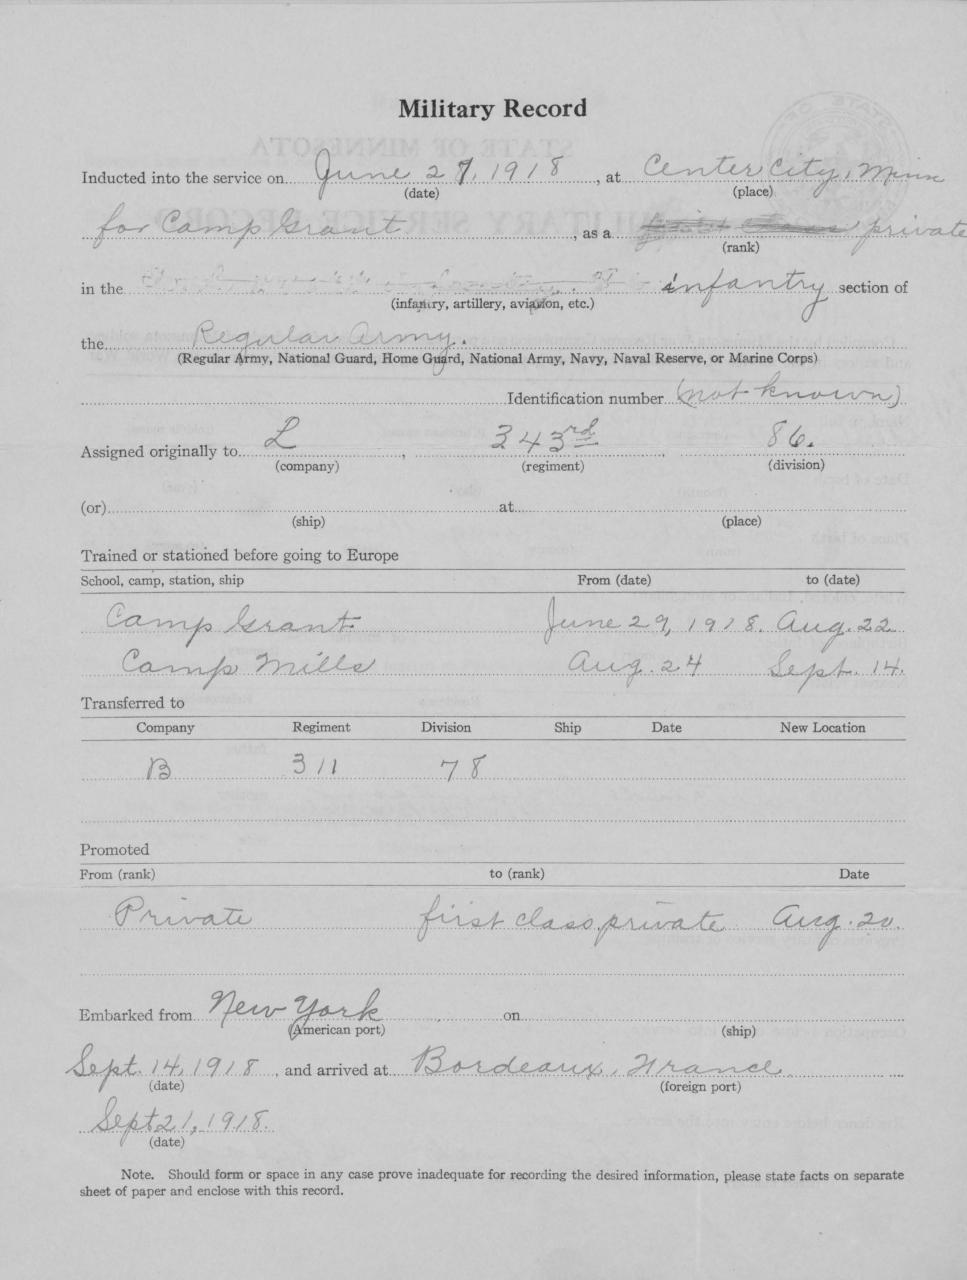 Military Record
Inducted into the service on June 27, 1918, at Center City, Minn
(date) (place)
for Camp Grant, as a private
(rank)
in the infantry section of
(infantry, artillery, aviation, etc.)
the Regular Army.
(Regular Army, National Guard, Home Guard, National Army, Navy, Naval Reserve, or Marine Corps)
Identification number (not known)
Assigned originally to L, 343rd, 86.
(company) (regiment) (division)
(or) at
(ship) (place)
Trained or stationed before going to Europe
School, camp, station, ship From (date) to (date)
Camp Grant June 29, 1918. Aug. 22
Camp Mills Aug. 24 Sept. 14.
Transferred to
Company Regiment Division Ship Date New Location
B 311 78
Promoted
From (rank) to (rank) Date
Private first class private Aug. 20.
Embarked from New York on
(American port) (ship)
Sept. 14, 1918, and arrived at Bordeaux, France
(date) (foreign port)
Sept 21, 1918.
(date)
Note. Should form or space in any case prove inadequate for recording the desired information, please state facts on separate
sheet of paper and enclose with this record.